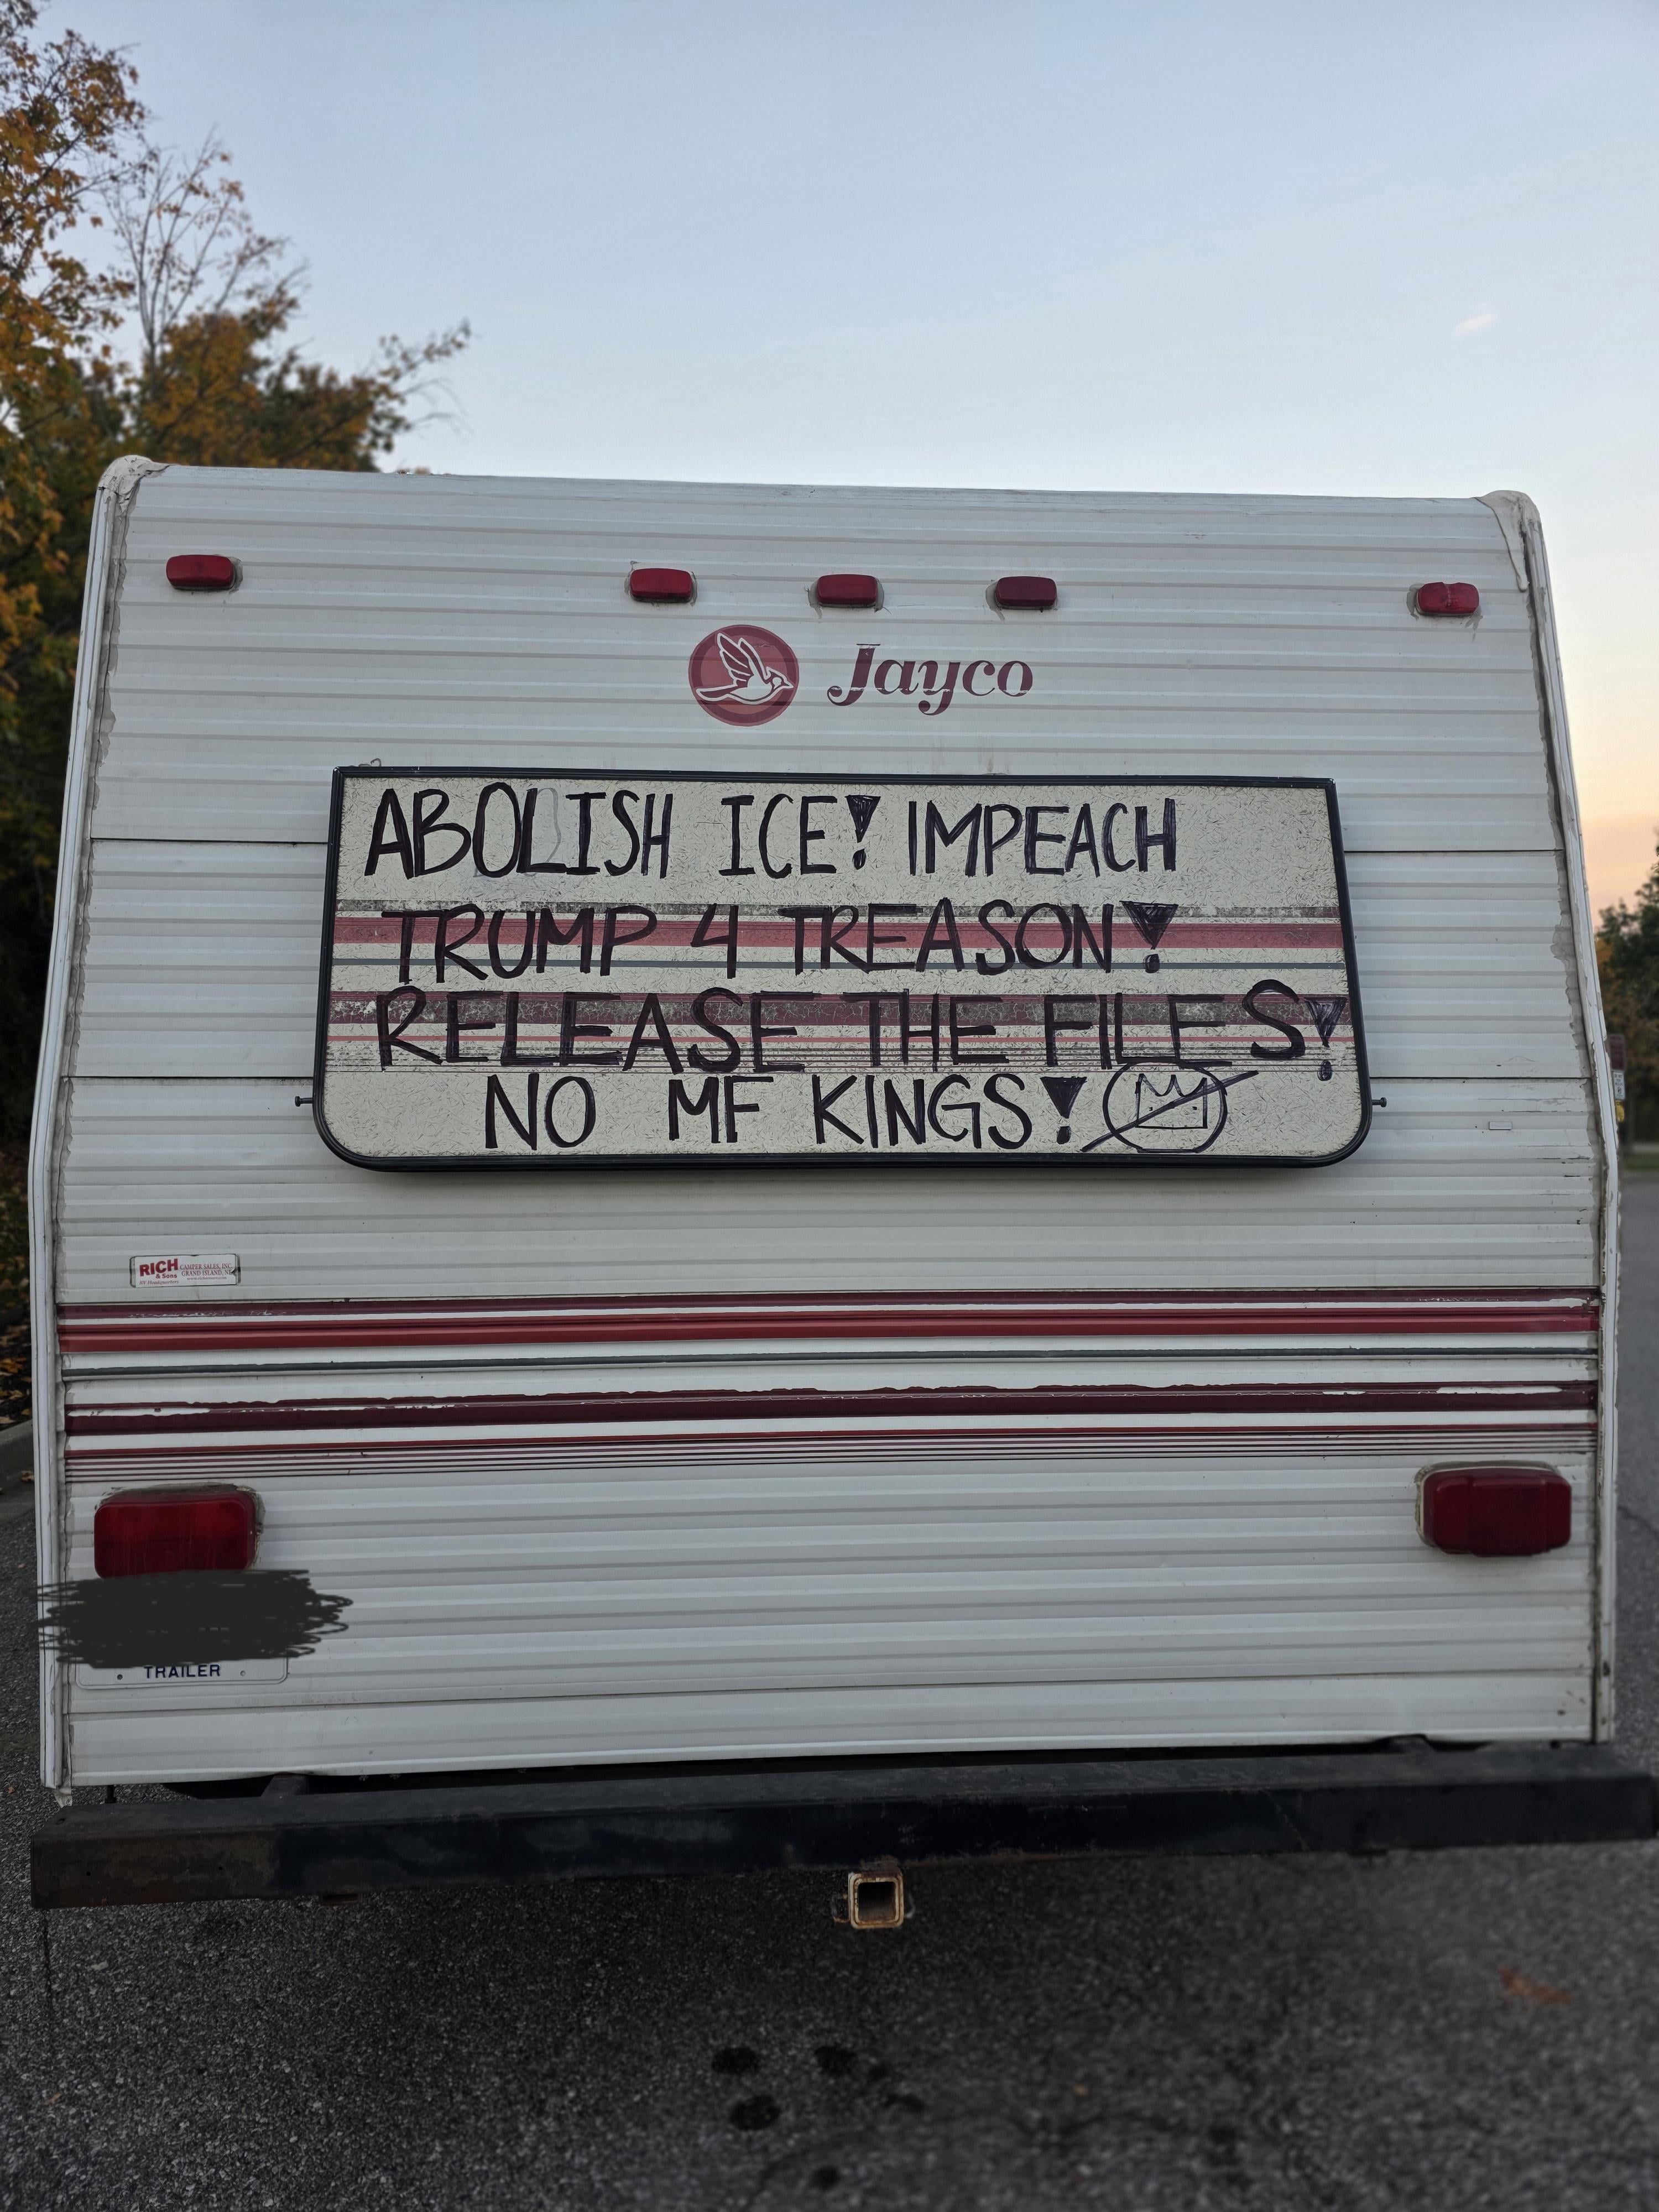 Jayco
ABOLISH ICE! IMPEACH
TRUMP 4 TREASON!
RELEASE THE FILES!
NO MF KINGS!
RICH CAMPER SALES, INC.
& Sons GRAND ISLAND, NE
TRAILER